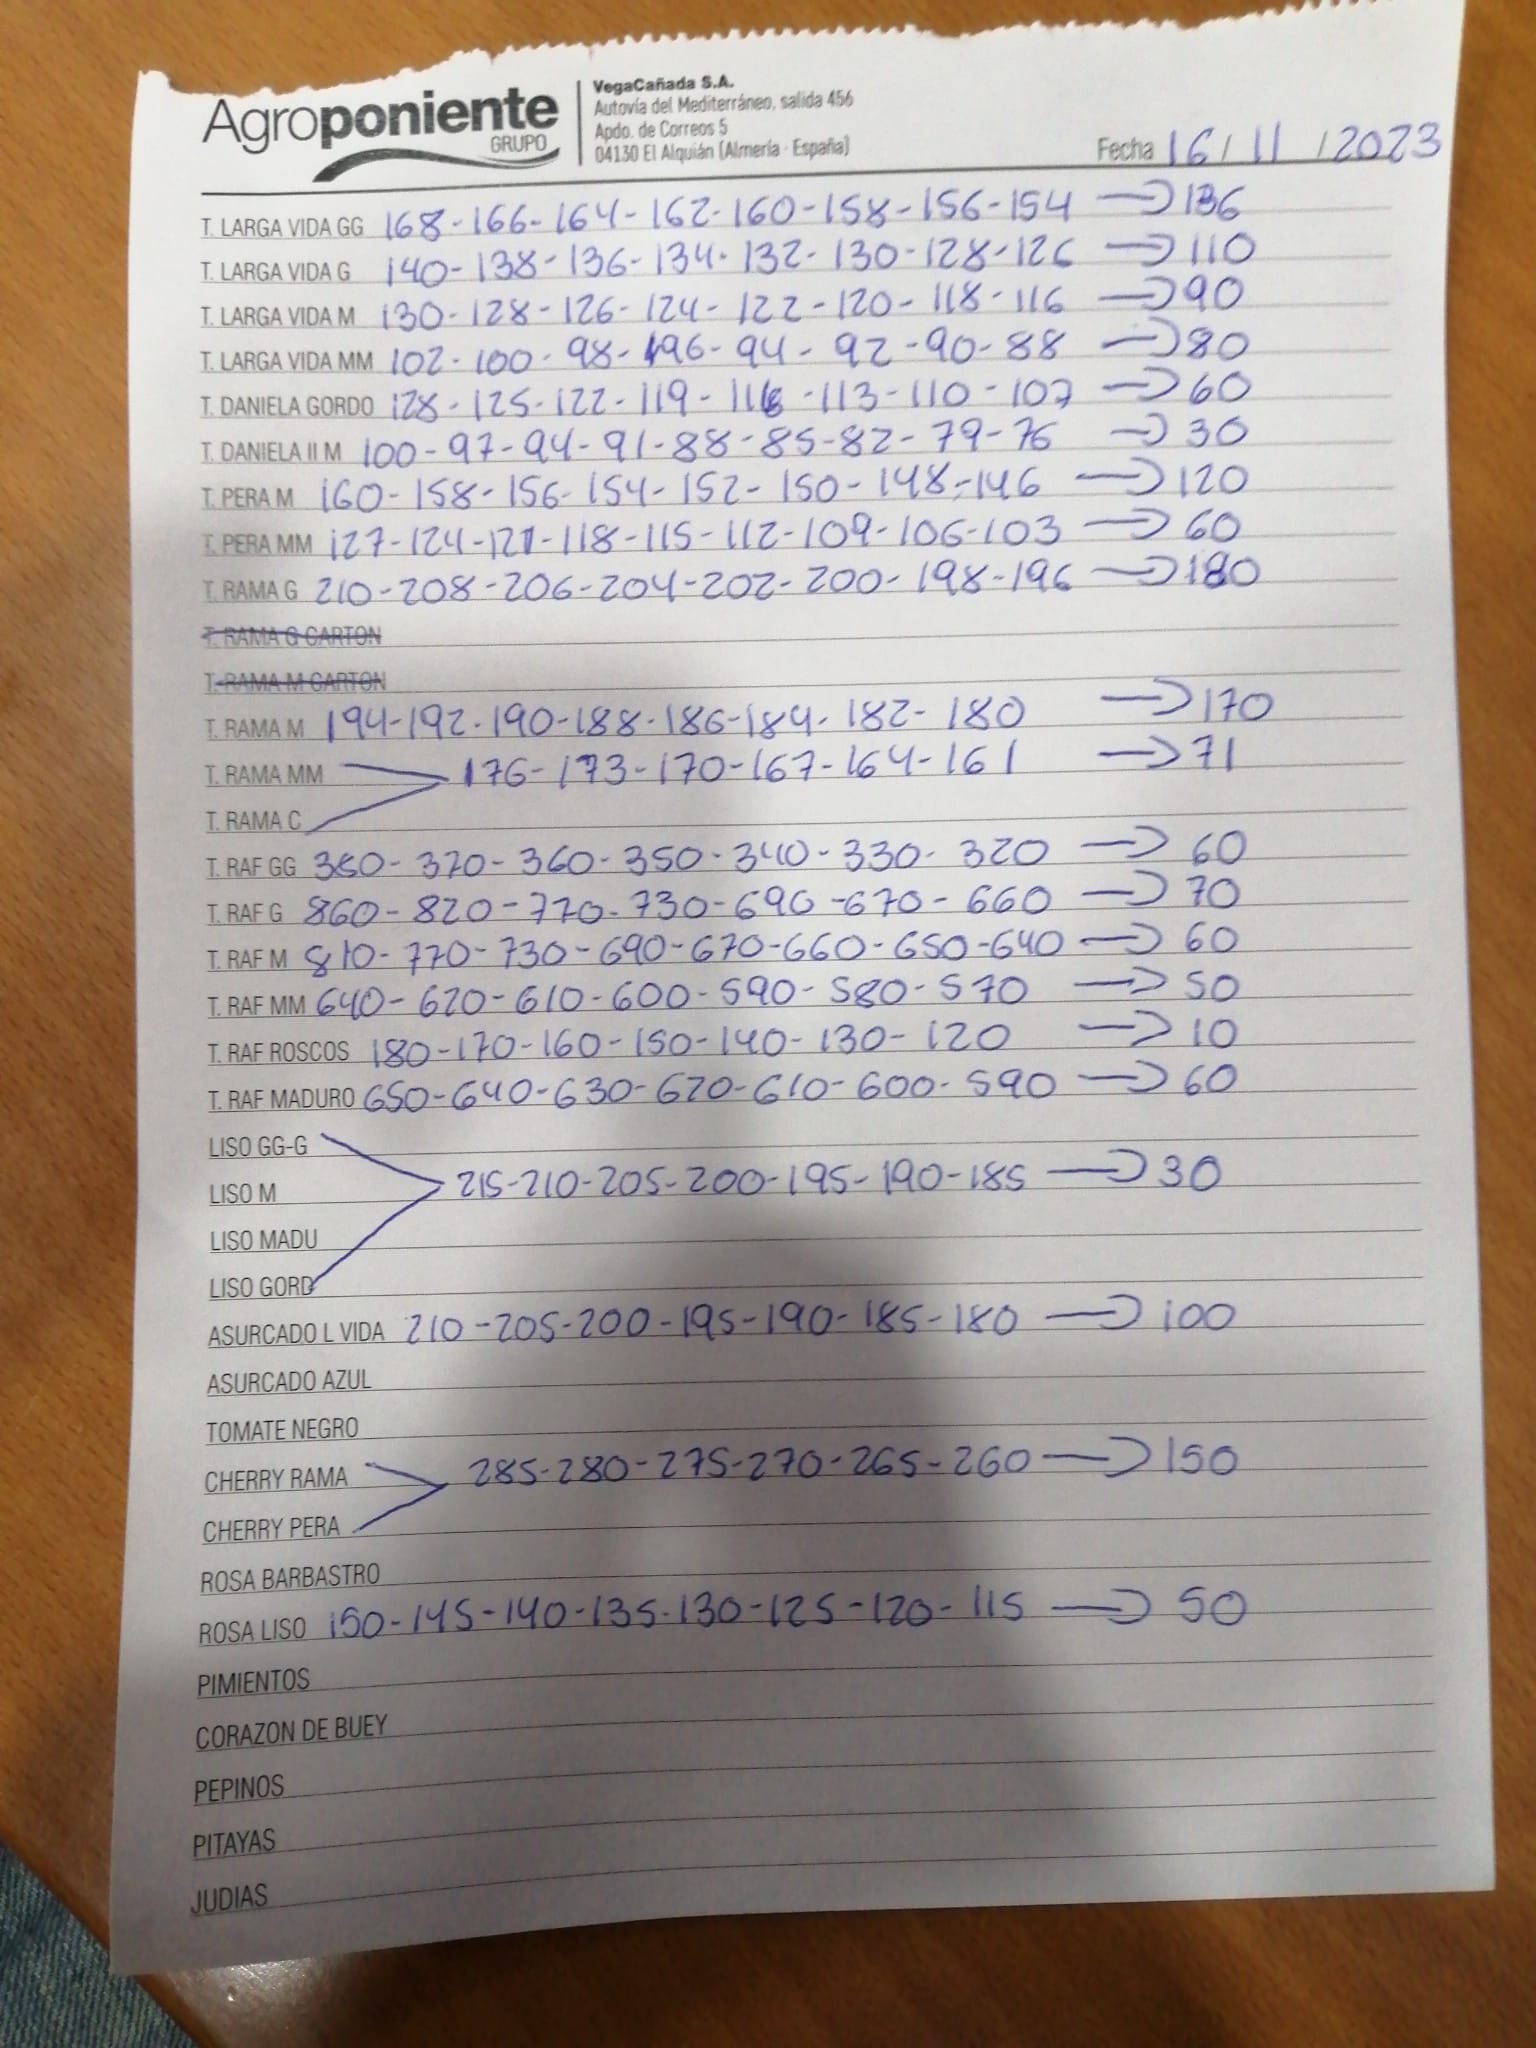 Agroponiente
GRUPO
VegaCañada S.A.
Autovía del Mediterráneo, salida 456
Apdo. de Correos 5
04130 El Alquián (Almería · España)
Fecha 16 / 11 / 2023
T. LARGA VIDA GG 168-166-164-162-160-158-156-154 → 136
T. LARGA VIDA G 140-138-136-134-132-130-128-126 → 110
T. LARGA VIDA M 130-128-126-124-122-120-118-116 → 90
T. LARGA VIDA MM 102-100-98-96-94-92-90-88 → 80
T. DANIELA GORDO 128-125-122-119-116-113-110-107 → 60
T. DANIELA II M 100-97-94-91-88-85-82-79-76 → 30
T. PERA M 160-158-156-154-152-150-148-146 → 120
T. PERA MM 127-124-121-118-115-112-109-106-103 → 60
T. RAMA G 210-208-206-204-202-200-198-196 → 180
T. RAMA G CARTON
T. RAMA M CARTON
T. RAMA M 194-192-190-188-186-184-182-180 → 170
T. RAMA MM 176-173-170-167-164-161 → 71
T. RAMA C
T. RAF GG 380-370-360-350-340-330-320 → 60
T. RAF G 860-820-770-730-690-670-660 → 70
T. RAF M 810-770-730-690-670-660-650-640 → 60
T. RAF MM 640-620-610-600-590-580-570 → 50
T. RAF ROSCOS 180-170-160-150-140-130-120 → 10
T. RAF MADURO 650-640-630-620-610-600-590 → 60
LISO GG-G
LISO M 215-210-205-200-195-190-185 → 30
LISO MADU
LISO GORD
ASURCADO L VIDA 210-205-200-195-190-185-180 → 100
ASURCADO AZUL
TOMATE NEGRO
CHERRY RAMA 285-280-275-270-265-260 → 150
CHERRY PERA
ROSA BARBASTRO
ROSA LISO 150-145-140-135-130-125-120-115 → 50
PIMIENTOS
CORAZON DE BUEY
PEPINOS
PITAYAS
JUDIAS